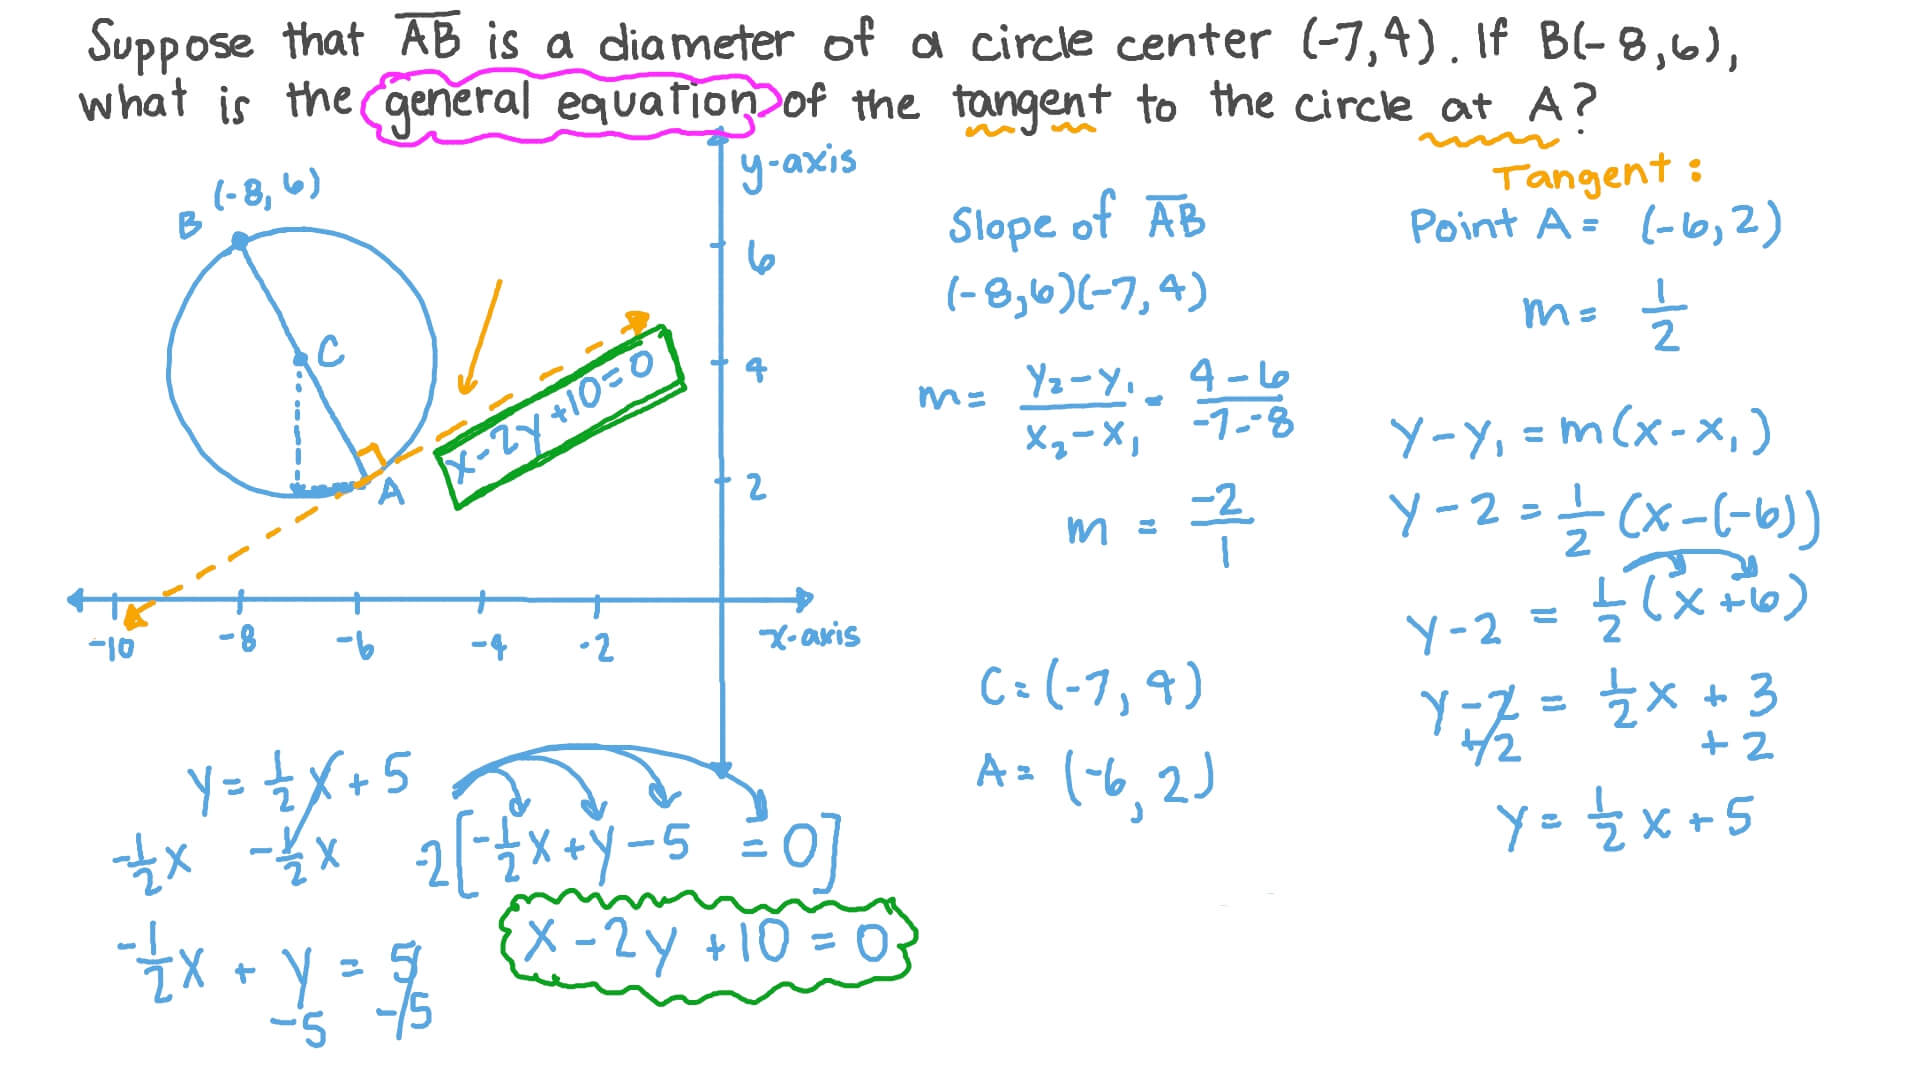 Suppose that AB is a diameter of a circle center (-7,4). If B(-8,6),
what is the general equation of the tangent to the circle at A?
y-axis
(-8, 6)
B
C
A
x-2y+10=0
6
4
2
-10
-8
-6
-4
-2
x-axis
Slope of AB
(-8,6)(-7,4)
m = y₂-y₁/x₂-x₁ = 4-6/-7--8
m = -2/1
C = (-7, 4)
A = (-6, 2)
Tangent:
Point A = (-6,2)
m = 1/2
y-y₁ = m(x-x₁)
y-2 = 1/2 (x-(-6))
y-2 = 1/2 (x+6)
y-2 = 1/2 x + 3
+2 +2
y = 1/2 x + 5
y = 1/2 x + 5
-1/2 x -1/2 x
-1/2 x + y = 5
-5 -5
-2[-1/2 x + y - 5 = 0]
x - 2y + 10 = 0